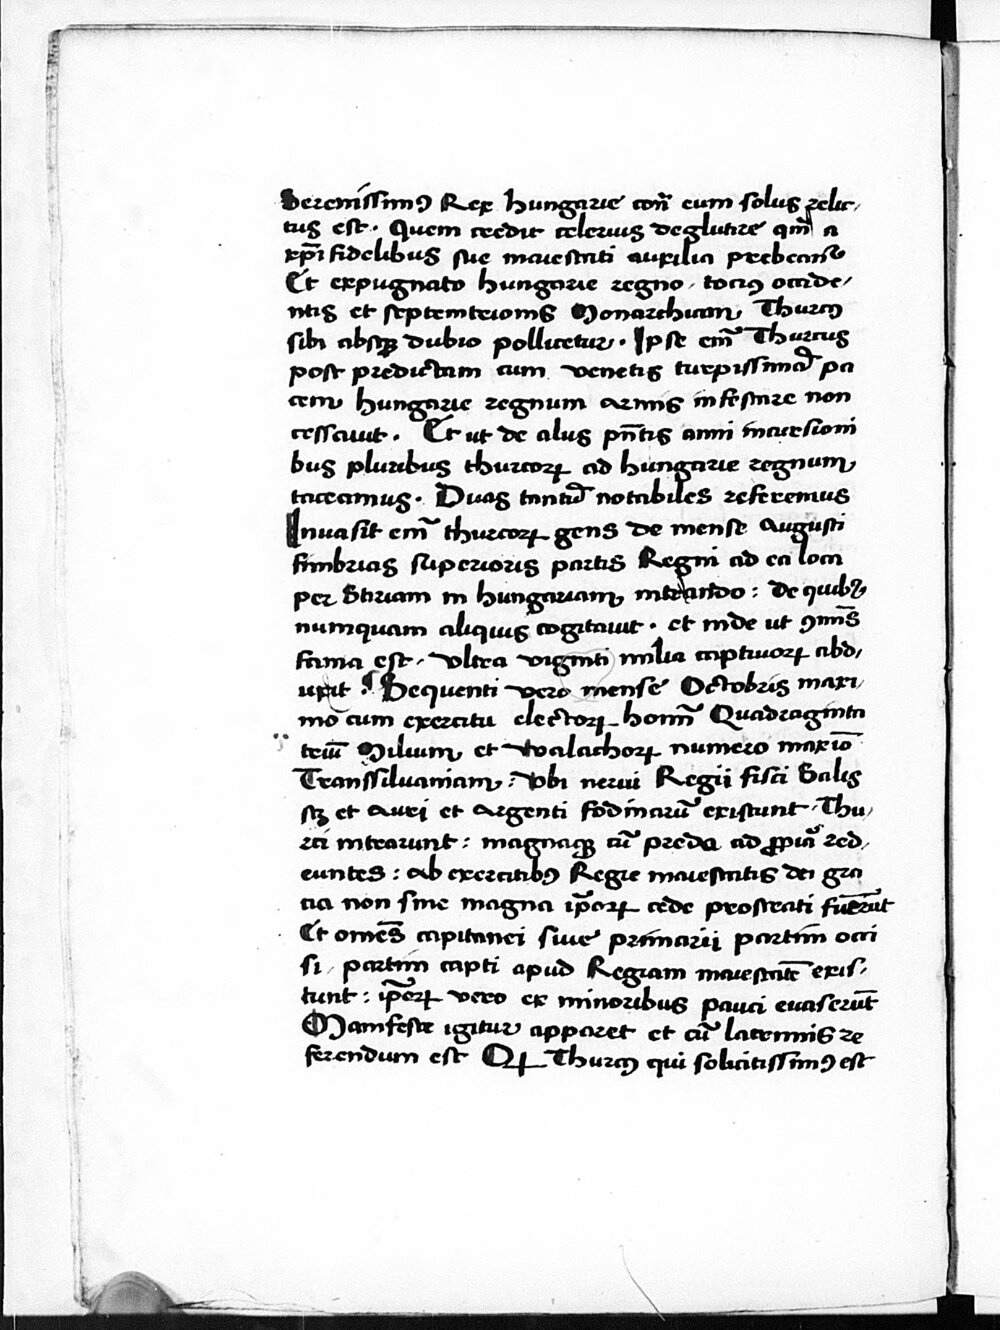 Serenissimꝰ Rex hungarie cont͛ eum solus relic
tus est. Quem credit celerius deglutire qm̄ a
xp̄i fidelibus sue maiestati auxilia prebeant᷑
Et expugnato hungarie regno, tociꝰ occide,
ntis et septemtrionis Monarchiam Thurcꝰ
sibi absqꝫ dubio pollicetur. Ipse em̄ Thurcus
post predictam cum venetis turpissimā pa
cem hungarie regnum armis infestare non
cessauit. Et ut de alijs pn̄tis anni incursioni
bus pluribus thurcoꝝ ad hungarie regnum
taceamus. Duas tantū notabiles referemus
Inuasit em̄ thurcoꝝ gens de mense Augusti
fimbrias superioris partis Regni ad ea loca
per Stiriam in hungariam intrando: de quibꝫ
numquam aliquis cogitauit. et inde ut ꝯmīs
fama est, vltra viginti milia captiuoꝝ abd,
uxit. Sequenti vero mense Octobris maxi,
mo cum exercitu electoꝝ homīn Quadraginta
triū Milium et Walachoꝝ numero maxīo
Transsiluaniam: vbi nerui Regij fisci Salis
sꝫ et Auri et Argenti fodinarū existunt, Thu,
rci intrarunt: magnaqꝫ cū preda ad ꝓpia red,
euntes: ab exercitibꝰ Regie maiestatis dei gra
cia non sine magna ip̄oꝝ cede prostrati fuerūt
Et omēs capitanei siue primarij partim occi
si, partim capti apud Regiam maiestatē exis,
tunt: ip̄oꝝ vero ex minoribus pauci euaserūt
Manifeste igitur apparet et cū lacrimis re
ferendum est Qꝝ Thurcꝰ qui solicitissimꝰ est